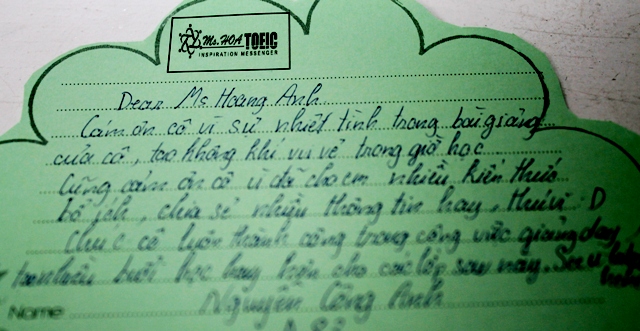 Ms. HOA TOEIC
INSPIRATION MESSENGER
Dear Ms Hoang Anh
Cám ơn cô vì sự nhiệt tình trong bài giảng
của cô, tạo không khí vui vẻ trong giờ học
Cũng cám ơn cô vì đã cho em nhiều kiến thức
bổ ích, chia sẻ nhiều thông tin hay, thú vị :D
Chúc cô luôn thành công trong công việc giảng dạy,
buổi học hay hơn cho các lớp sau này.
Name Nguyễn Công Anh